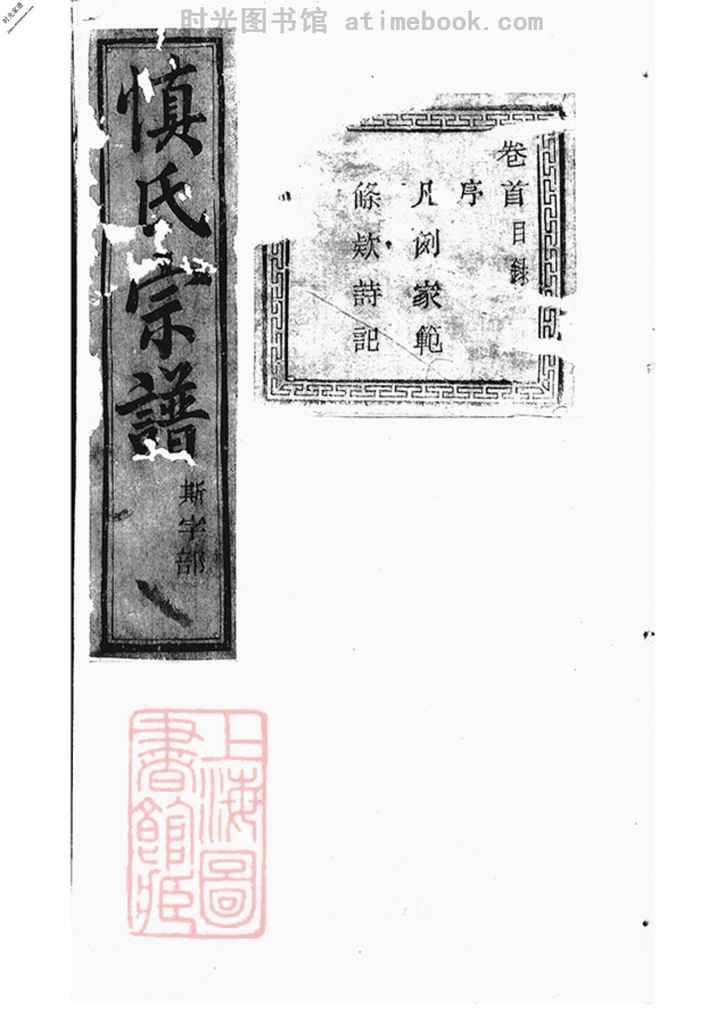 时光图书馆 atimebook.com
卷首目錄
序
凡例家範
條欵詩記
慎氏宗譜
斯字部
上海圖
書館藏